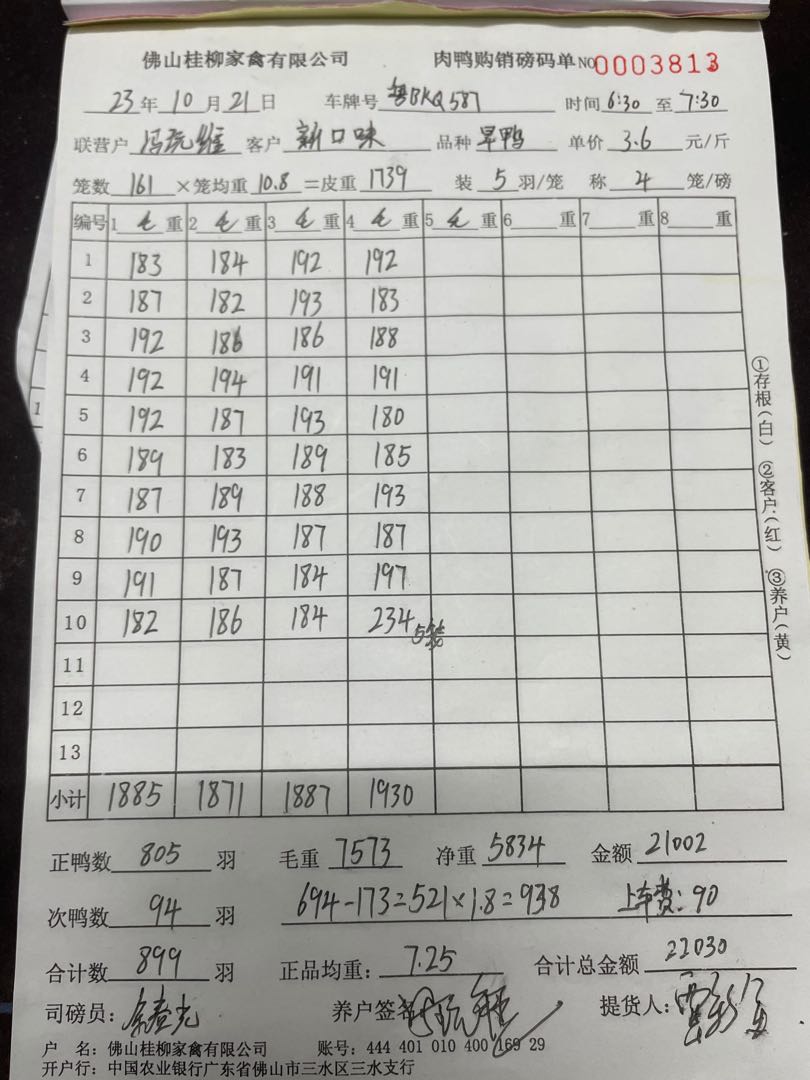 佛山桂柳家禽有限公司 肉鸭购销磅码单 NO 0003813
23年10月21日 车牌号 粤BKQ587 时间 6:30 至 7:30
联营户 冯 维 客户 新口味 品种 旱鸭 单价 3.6 元/斤
笼数 161 ×笼均重 10.8 =皮重 1739 装 5 羽/笼 称 4 笼/磅
编号 1 毛 重 2 毛 重 3 毛 重 4 毛 重 5 毛 重 6 重 7 重 8 重
1 183 184 192 192
2 187 182 193 183
3 192 186 186 188
4 192 194 191 191
5 192 187 193 180
6 189 183 189 185
7 187 189 188 193
8 190 193 187 187
9 191 187 184 197
10 182 186 184 234 5笼
11
12
13
小计 1885 1871 1887 1930
①存根(白) ②客户(红) ③养户(黄)
正鸭数 805 羽 毛重 7573 净重 5834 金额 21002
次鸭数 94 羽 694-173=521×1.8=938 上车费:90
合计数 899 羽 正品均重: 7.25 合计总金额 22030
司磅员: 养户签名 提货人:
户 名: 佛山桂柳家禽有限公司 账号: 444 401 010 400 169 29
开户行: 中国农业银行广东省佛山市三水区三水支行
1